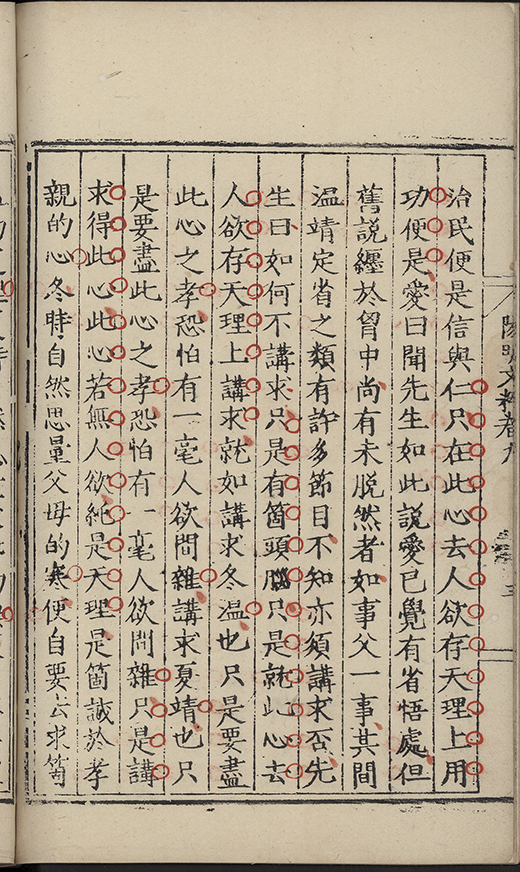 治民便是信與仁只在此心去人欲存天理上用
功便是愛曰聞先生如此說愛已覺有省悟處但
舊說纏於胷中尚有未脫然者如事父一事其間
温凊定省之類有許多節目不知亦須講求否先
生曰如何不講求只是有箇頭腦只是就此心去
人欲存天理上講求就如講求冬温也只是要盡
此心之孝恐怕有一毫人欲間雜講求夏凊也只
是要盡此心之孝恐怕有一毫人欲間雜只是講
求得此心此心若無人欲純是天理是箇誠於孝
親的心冬時自然思量父母的寒便自要去求箇
陽明文粹卷九
三